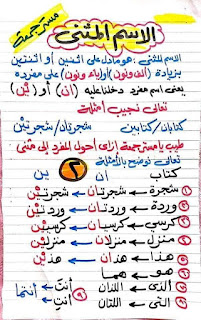 مستر جمعة
الاسم المثنى
الاسم المثنى: هو ما دل على اثنين أو اثنتين
بزيادة (الف ونون) أو (ياء ونون) على مفرده
يعنى اسم مفرد دخلنا عليه (ان) أو (ين)
تعالى نجيب أمثلة
كتابان / كتابين شجرتان / شجرتين
طيب يا مستر جمعة ازاى أحول المفرد إلى مثنى
تعالى نوضح بالأمثلة
كتاب ان ٢ ين
① شجرة ← شجرتان ← شجرتين
② وردة ← وردتان ← وردتين
③ كرسي ← كرسيان ← كرسيين
④ منزل ← منزلان ← منزلين
⑤ هذا ← هذان ← هذين
⑥ هو ← هما
⑦ الذى ← اللذان
⑧ التى ← اللتان
⑨ أنتَ أنتِ ← أنتما